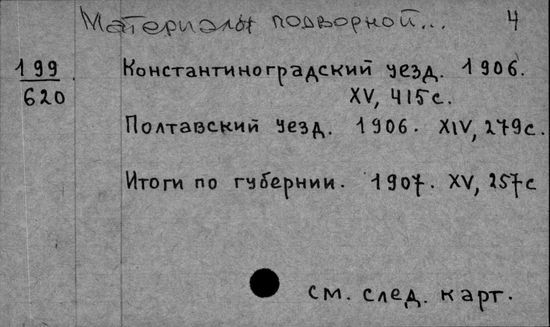 Материалы подворной... 4
199
620
Константиноградский уезд. 1906.
XV, 415с.
Полтавский уезд. 1906. XIV, 279с.
Итоги по губернии. 1907. XV, 257с
см. след. карт.